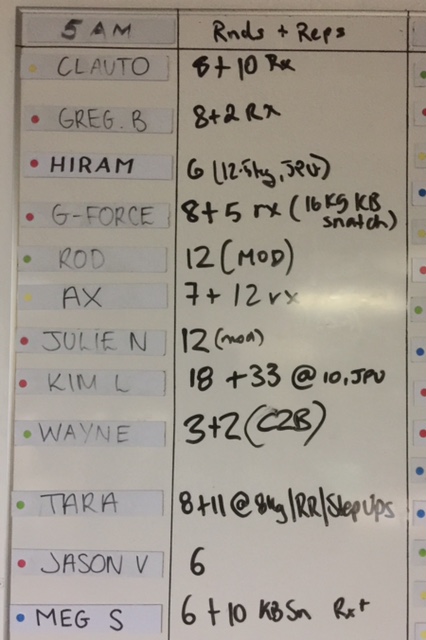 5 AM Rnds + Reps
CLAUTO 8+10 Rx
GREG. B 8+2 Rx
HIRAM 6 (12.5kg, JPU)
G-FORCE 8+5 rx (16 KG KB
snatch)
ROD 12 (MOD)
AX 7 + 12 rx
JULIE N 12 (mod)
KIM L 18 +33 @ 10, JPU
WAYNE 3+2 (C2B)
TARA 8+11 @ 8kg/RR/Step Ups
JASON V 6
MEG S 6 +10 KB Sn Rx+